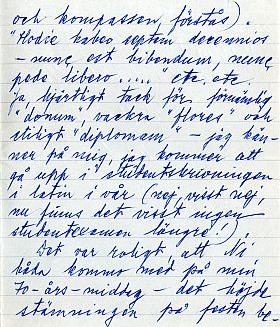 och kompassen, förstås).
"Hodie habeo septem decennios
- nunc est bibendum, nunc
pede libero....." etc. etc.
Ja, hjärtligt tack för förnämlig
"donum", vackra "flores" och
stiligt "diplomam" - jag kän-
ner på mig, jag kommer att
gå upp i studentskrivningen
i latin i vår (nej, visst nej,
nu finns det visst ingen
studentexamen längre!).
Det var roligt, att Ni
båda kommo med på min
70-års-middag - det höjde
stämningen på festen be-